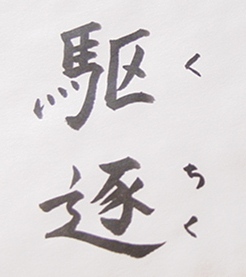 駆逐
くちく